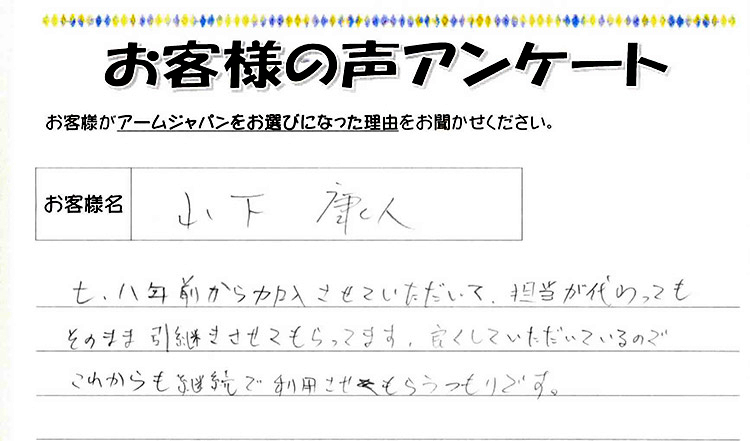 お客様の声アンケート
お客様がアームジャパンをお選びになった理由をお聞かせください。
お客様名
山下 康人
七、八年前から加入させていただいて、担当が代わっても
そのまま引継きさせてもらってます、良くしていただいているので
これからも継続で利用させてもらうつもりです。